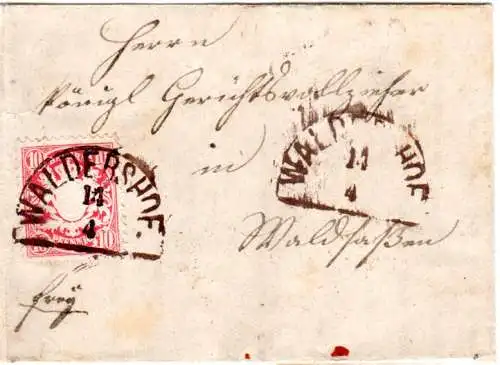 Herrn
Königl Gerichtsvollzieher
in
Waldsaßen
frey
10
10
WALDERSHOF.
14
4
WALDERSHOF
14
4